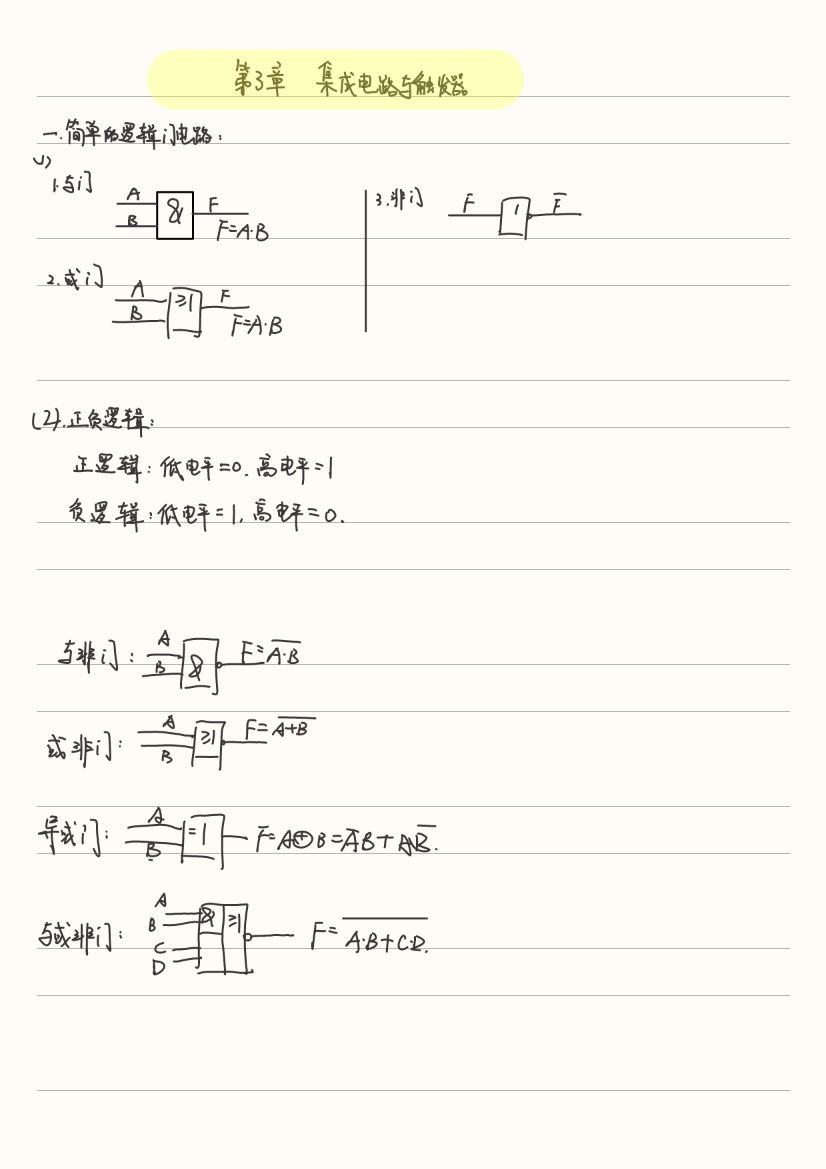 第3章 集成电路与触发器
一.简单的逻辑门电路:
(1)
1.与门
A
B
&
F
F=A·B
2.或门
A
B
≥1
F
F=A·B
3.非门
F
1
F̅
(2).正负逻辑:
正逻辑:低电平=0.高电平=1
负逻辑:低电平=1,高电平=0.
与非门:
A
B
&
F=A̅·̅B̅
或非门:
A
B
≥1
F=A̅+̅B̅
异或门:
A
B
=1
F=A⊕B=A̅B+AB̅.
与或非门:
A
B
C
D
&
≥1
F=A̅·̅B̅+̅C̅·̅D̅.